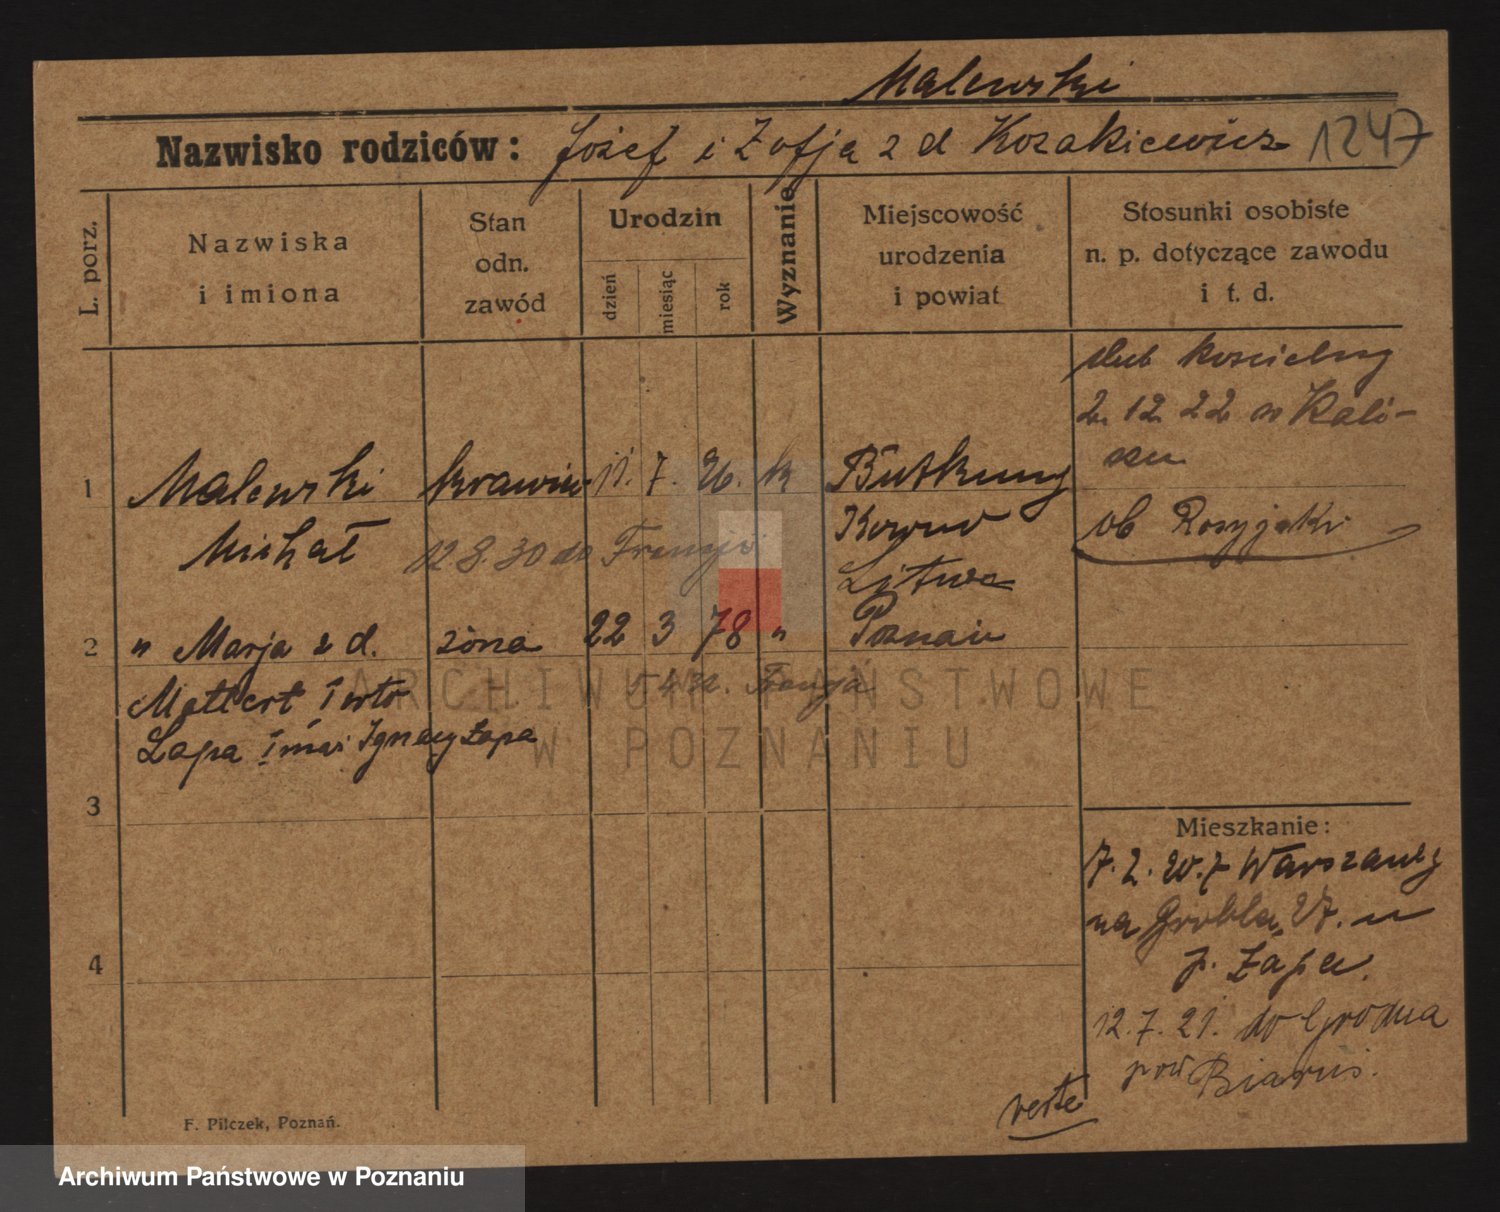 Malewski
Nazwisko rodziców: Józef i Zofja z d Kozakiewicz 1247
L. porz.
Nazwiska
i imiona
Stan
odn.
zawód
Urodzin
dzień
miesiąc
rok
Wyznanie
Miejscowość
urodzenia
i powiat
Stosunki osobiste
n. p. dotyczące zawodu
i t. d.
ślub kościelny
2. 12 22 w Kali-
szu
ob Rosyjski
1 Malewski krawiec 11. 7. 96. k
Michał 12.8.30 do Francji
Kowno
Litwa
2 " Marja z d. żona 22 3 78 " Poznań
Mettert
5 4 32. Francja
Łapa Ignacy Łapa
3
4
Mieszkanie:
7. 2. 20. z Warszawy
na Grobla 27. u
p. Łapa.
12. 7. 21. do Grodna
pow
verte
F. Pilczek, Poznań.
ARCHIWUM PAŃSTWOWE
W POZNANIU
Archiwum Państwowe w Poznaniu